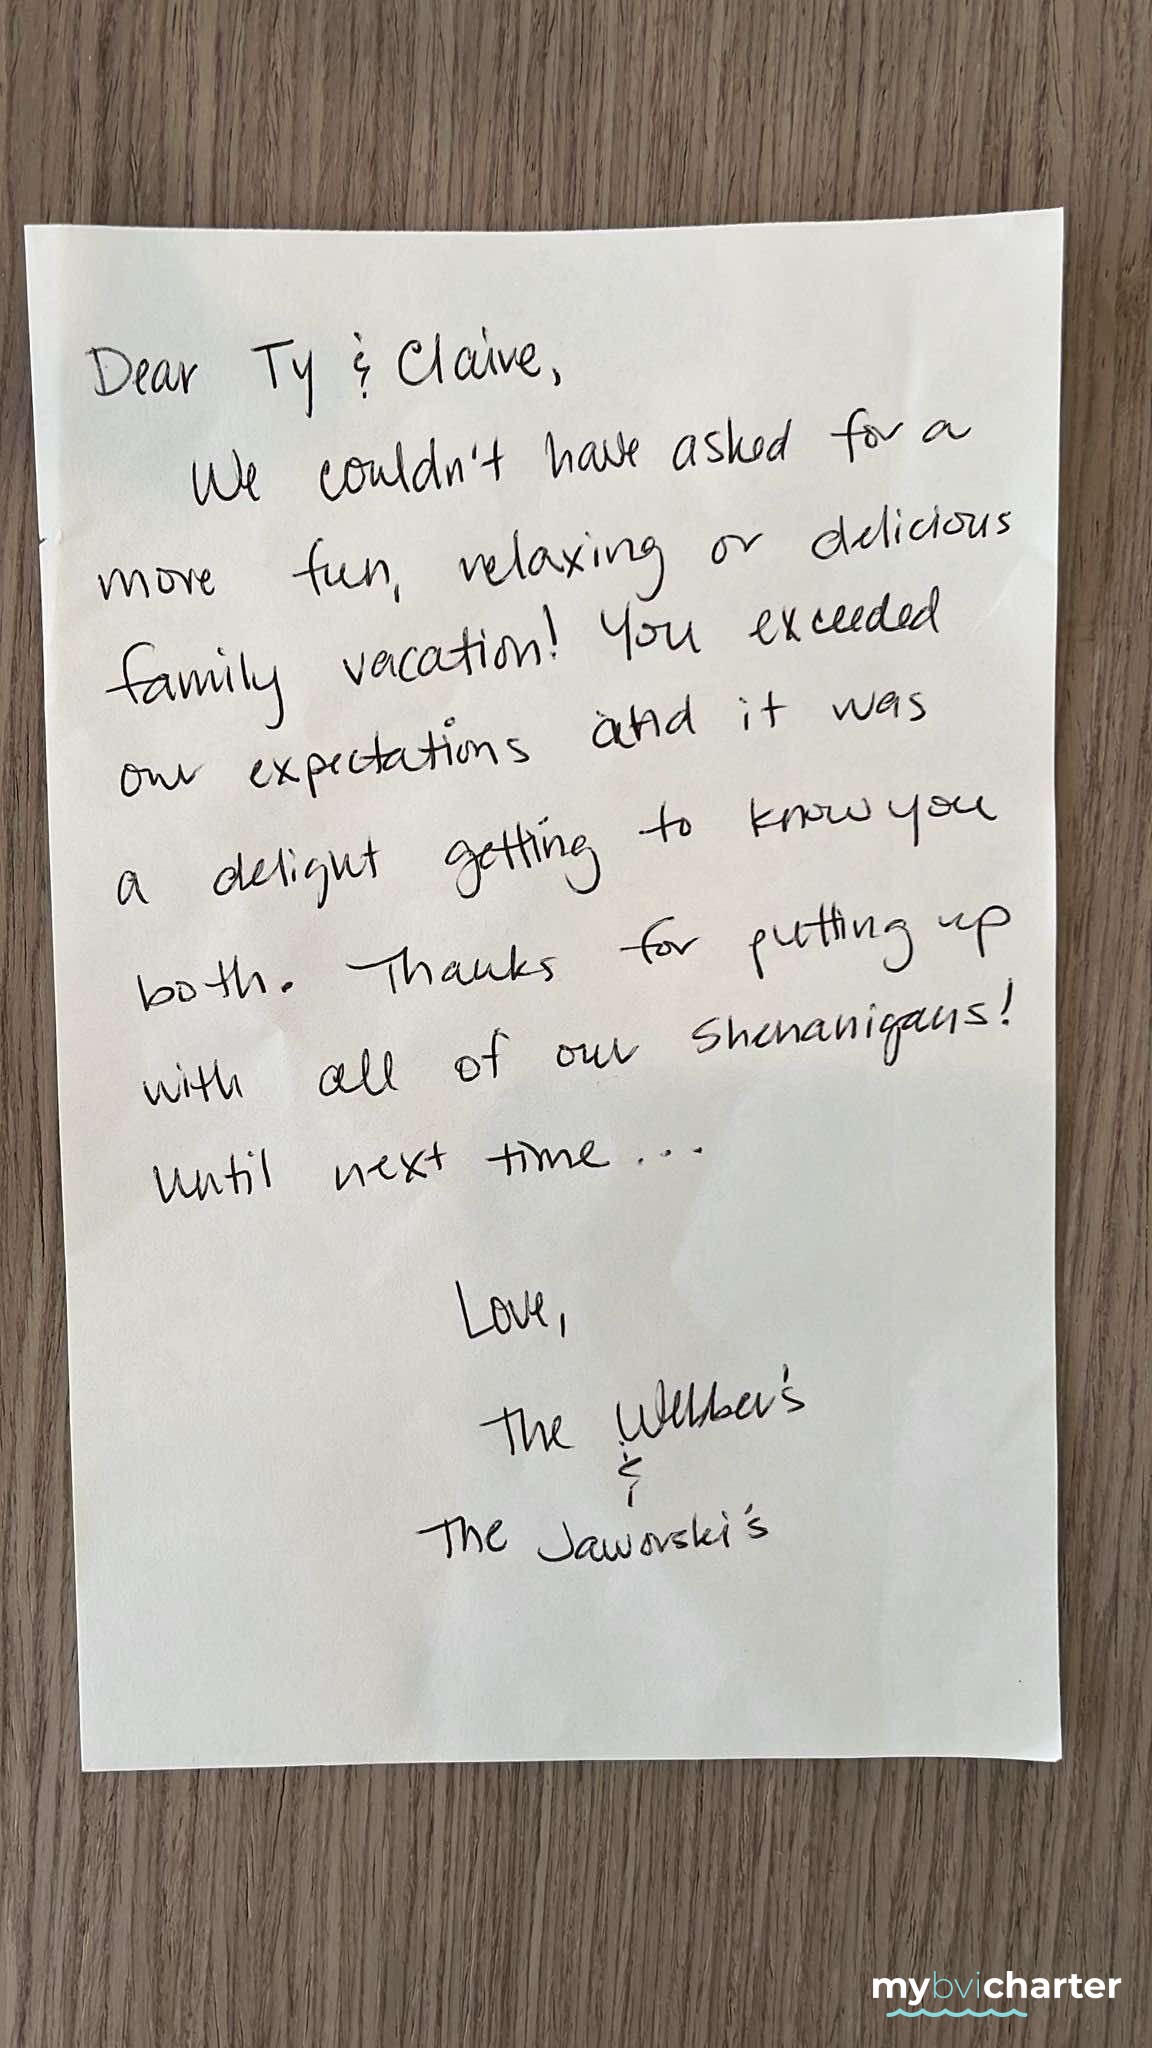 Dear Ty & Claire,
We couldn't have asked for a
more fun, relaxing or delicious
family vacation! You exceeded
our expectations and it was
a delight getting to know you
both. Thanks for putting up
with all of our shenanigans!
Until next time...
Love,
The Webber's
&
The Jaworski's
mybvicharter